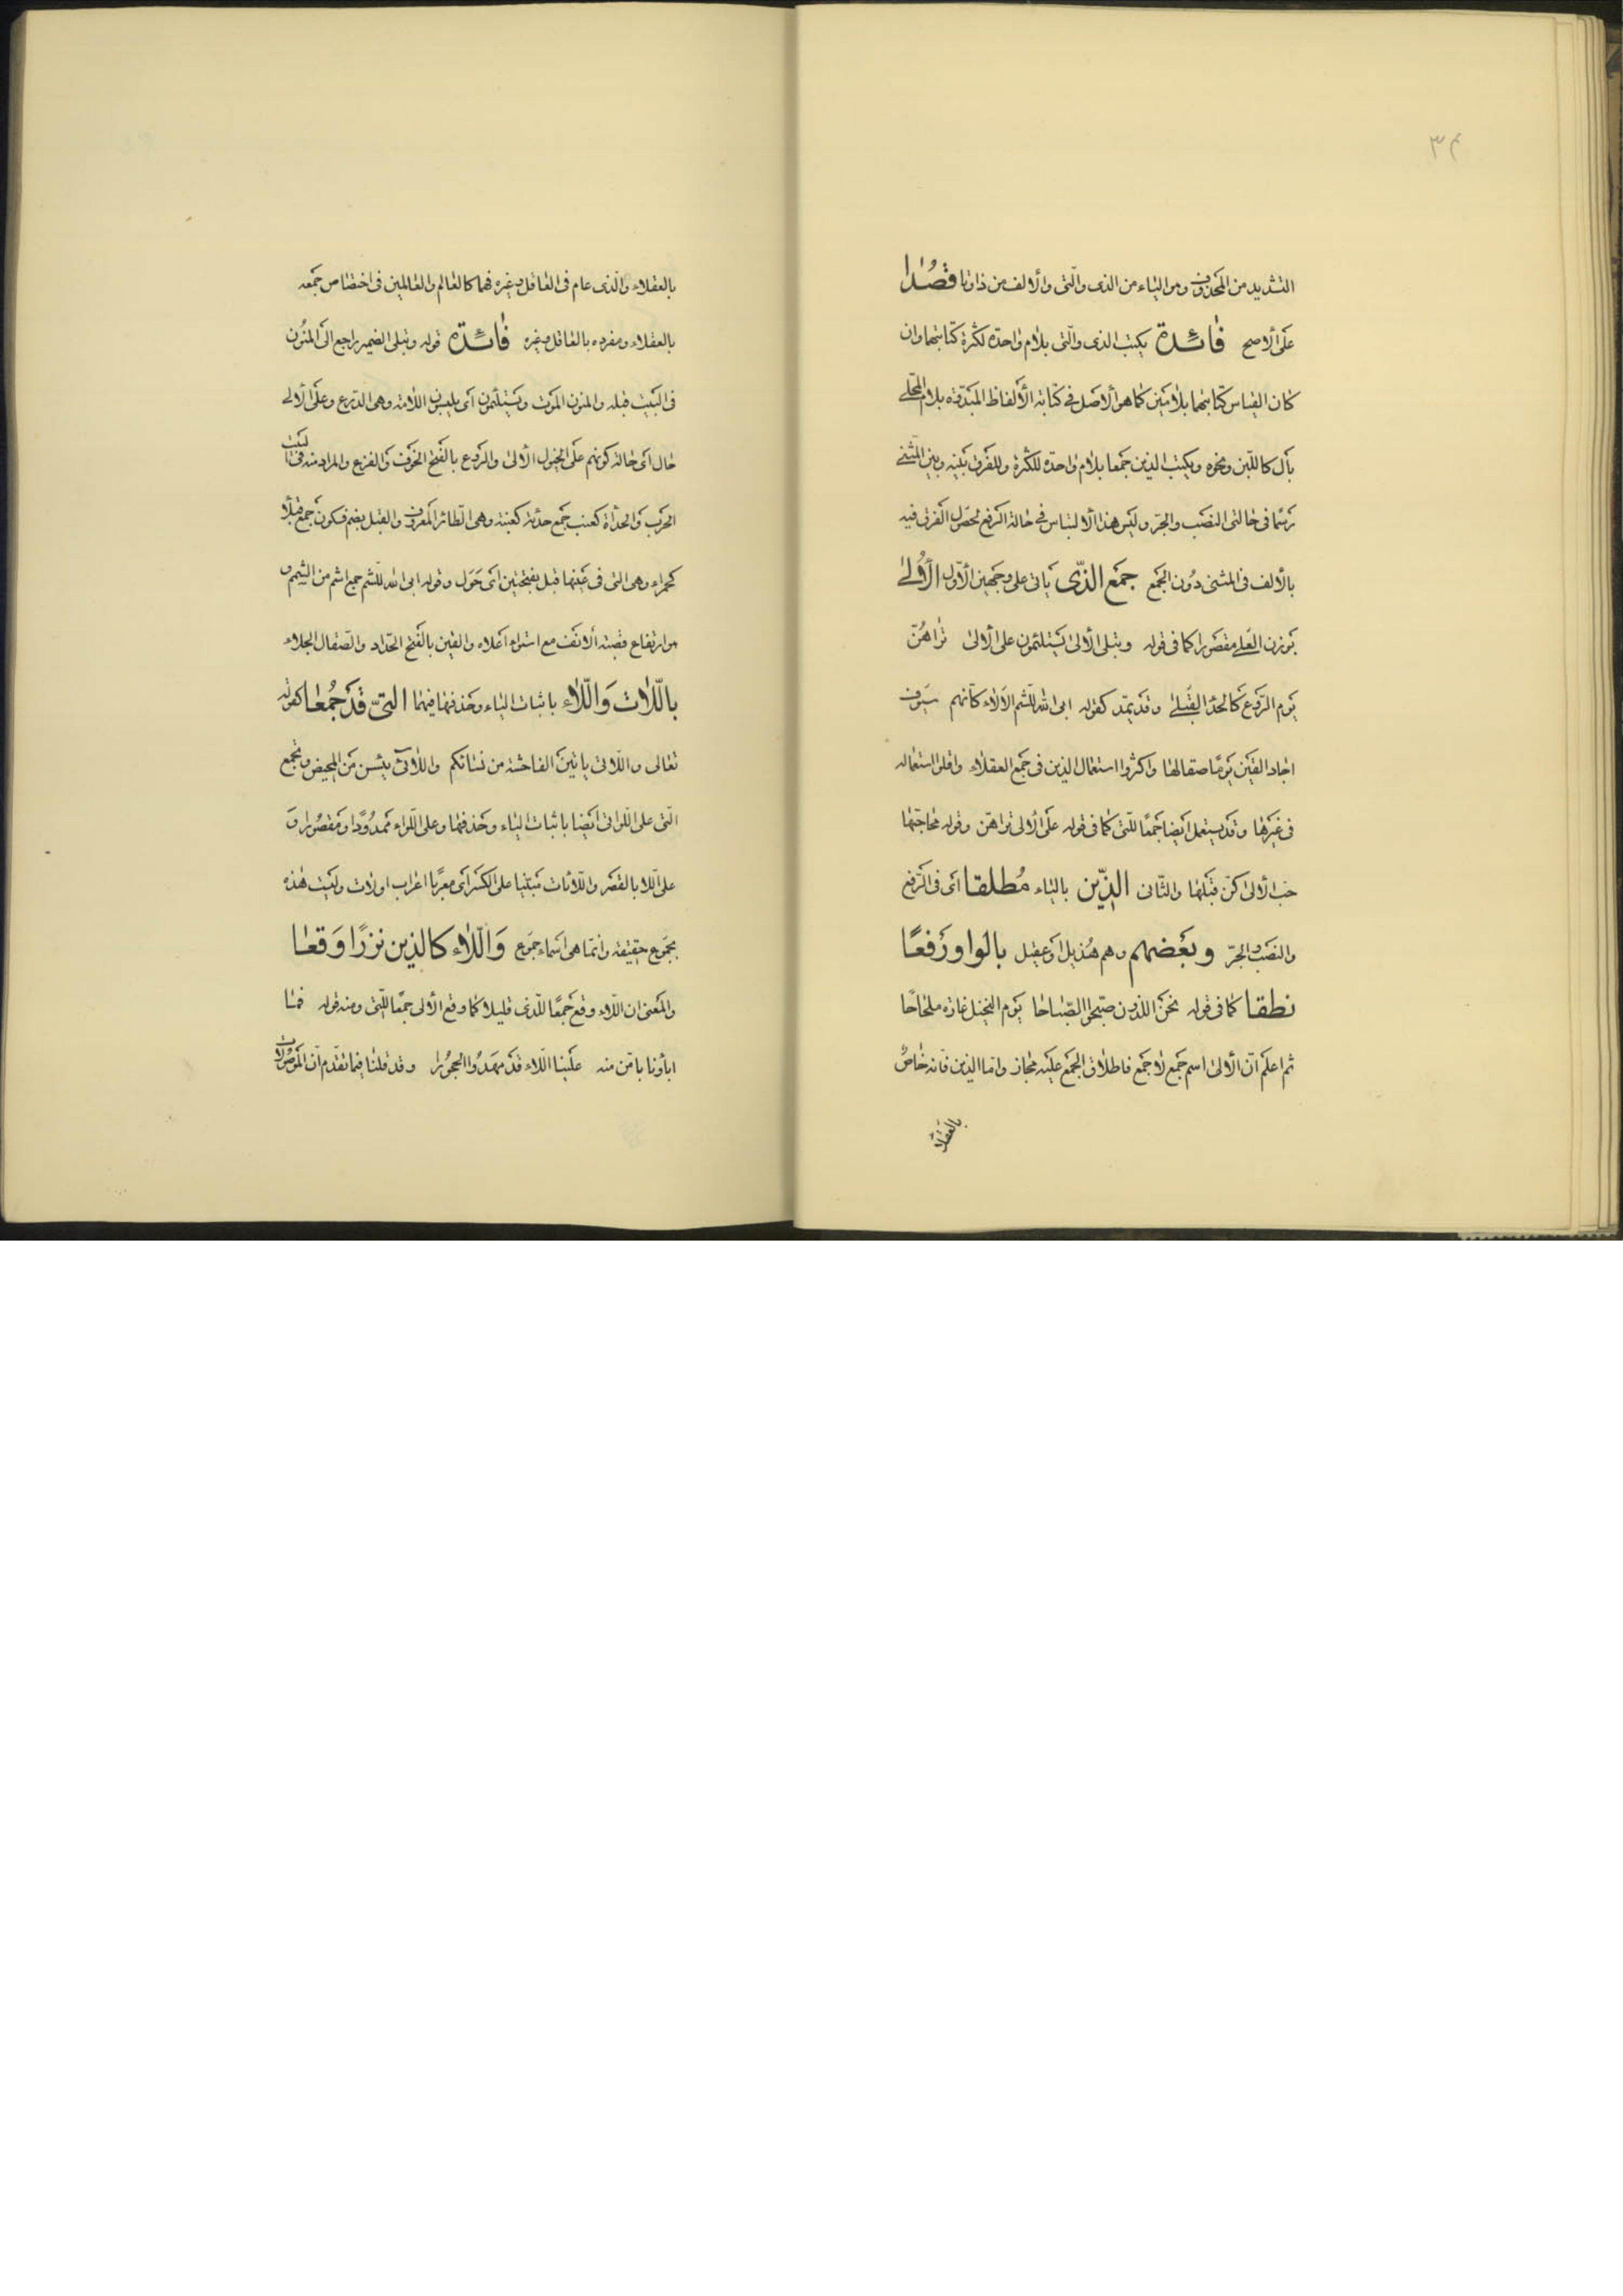 ٣٤
التشديد من المحذوف ومن الياء من الذى والتى والألف من ذا وتا قصدا
على الأصح فائدة يكتب الذى والتى بلام واحدة لكثرة كتابتهما وان
كان القياس كتابتهما بلامين كما هو الأصل فى كتابة الألفاظ المبتدئة بلام المحلى
بأل كاللبن ونحوه ويكتب الذين جمعا بلام واحدة للكثرة وللفرق بينه وبين المثنى
رسما فى حالتى النصب والجر وليس هذا الالتباس فى حالة الرفع لحصول الفرق فيه
بالألف فى المثنى دون الجمع جمع الذى يأتى على وجهين الأول الأولى
بوزن العلى مقصورا كما فى قوله وتبلى الألى يستلئمون على الألى تراهن
يوم الروع كالحدإ القبل وقد يمد كقوله ابى الله للشم الألاء كأنهم سيوف
اجاد القين يوما صقالها واكثروا استعمال الذين فى جمع العقلاء واقلوا استعماله
فى غيرها وقد يستعمل ايضا جمعا للتى كما فى قوله على الألى تراهن وقوله محا حبها
حب الألى كن قبلها والثانى الذين بالياء مطلقا اى فى الرفع
والنصب والجر وبعضهم وهم هذيل او عقيل بالواو رفعًا
نطقا كما فى قوله نحن اللذون صبحوا الصباحا يوم النخيل غارة ملحاحًا
ثم اعلم ان الألى اسم جمع لا جمع فاطلاق الجمع عليه مجاز واما الذين فانه خاص
بالعقلا
بالعقلاء والذى عام فى العاقل وغيره فهما كالعالم والعالمين فى اختصاص جمعه
بالعقلاء ومفرده بالعاقل وغيره فائدة قوله وتبلى الضمير راجع الى المنون
فى البيت قبله والمنون الموت ويستلئمون اى يلبسون اللامة وهى الدرع وعلى الألى
حال اى حالة كونهم على الخيول الألى والروع بالفتح الخوف والفزع والمراد منه فى البيت
الحرب والحدأة كعنب جمع حدئة كعنبة وهى الطائر المعروف والقبل بضم فسكون جمع قبلا
كحمراء وهى التى فى عينها قبل بفتحتين اى حول وقوله ابى الله للشم جمع اشم من الشمم و
هو ارتفاع قصبة الأنف مع استواء اعلاه والقين بالفتح الحداد والصقال الجلاء
باللات واللاء باثبات الياء وحذفها فيهما التى قد جمعا كقوله
تعالى واللاتى يأتين الفاحشة من نسائكم واللائى يئسن من المحيض وتجمع
التى على اللواتى ايضا باثبات الياء وحذفها وعلى اللواء ممدودًا ومقصورا و
على اللا بالقصر واللاءات مبنيا على الكسر او معربًا اعراب اولات وليست هذه
بجموع حقيقة وانما هى اسماء جموع واللاء كالذين نزرًا وقعا
والمعنى ان اللاء وقع جمعًا للذى قليلا كما وقع الألى جمعًا للتى ومنه قوله فما
اباؤنا بامن منه علينا اللاء قد مهدوا الحجورا وقد قلنا فيما تقدم ان الموصولات